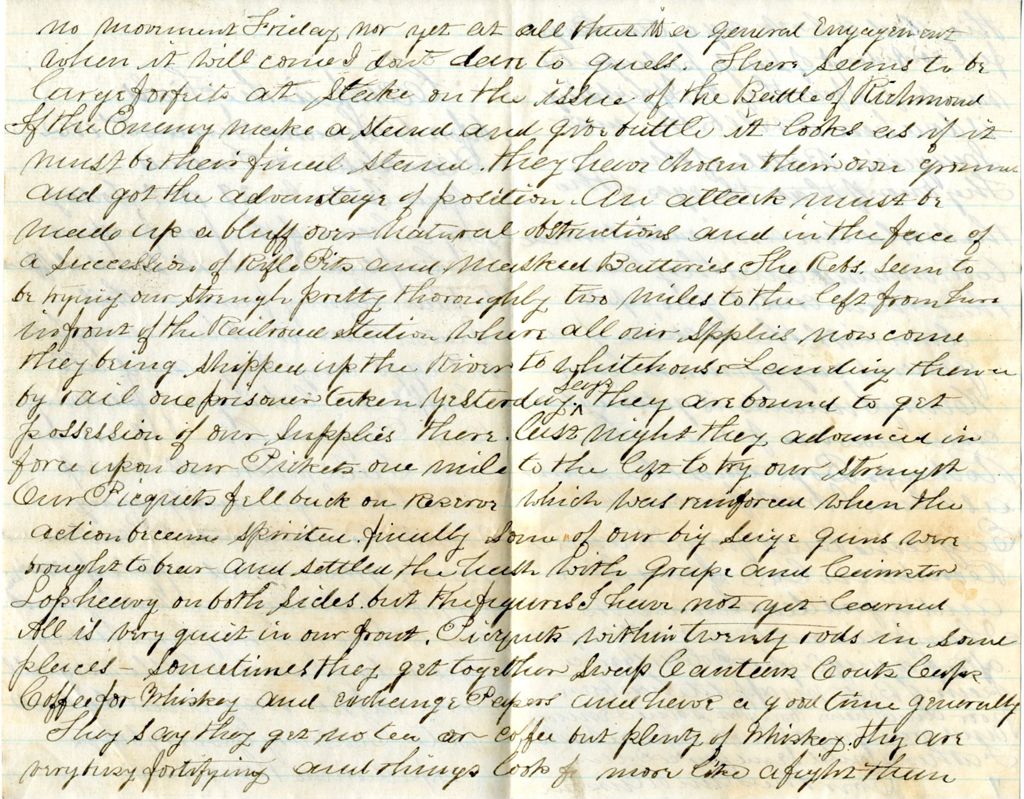 no movement Friday nor yet at all that is a general Engagement
when it will come I dont dare to guess. There seems to be
large forfeits at Stake on the issue of the Battle of Richmond
If the Enemy make a stand and give battle it looks as if it
must be their final stand. they have chosen their own ground
and got the advantage of position. An attack must be
made up a bluff over natural obstructions and in the face of
a succession of Rifle Pits and Masked Batteries The Rebs. seem to
be trying our strengh pretty thoroughly two miles to the left from here
in front of the Railroad Station where all our Spplies now come
they being shipped up the River to Whitehouse Landing thence
by rail one prisoner taken yesterday says they are bound to get
possession of our Supplies there. Last night they advanced in
force upon our Pickets one mile to the left to try our strength
Our Picquets fell back on reserve which was reinforced when the
action became spirited. finally some of our big seige guns were
brought to bear and settled the hash with grape and Canister
Loss heavy on both sides. but the figures I have not yet learned
All is very quiet in our front. Picquets within twenty rods in some
places - sometimes they get together swap Canteens Coats Caps
Coffee for Whiskey and exchange Papers and have a good time generally
They say they get no tea or coffee but plenty of Whiskey. They are
very busy fortifying and things look more like a fight than